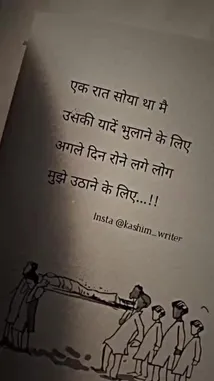 एक रात सोया था मै
उसकी यादें भुलाने के लिए
अगले दिन रोने लगे लोग
मुझे उठाने के लिए...!!
Insta @kashim_writer